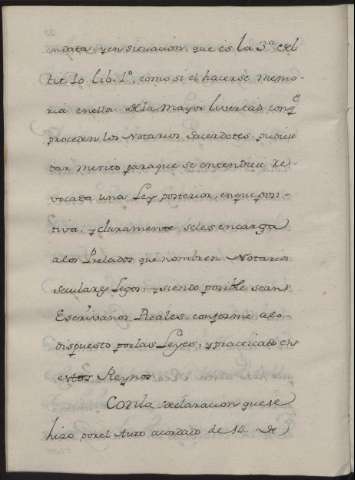 nota, y en situacion, que es la 3.ª del
tit. 10 lib. 1.º, como si el hacerse memo-
ria en ella de la mayor livertad con q.e
proceden los Notarios Sacerdotes, pudiee
dar merito para que se entendiese re-
vocada una Ley posterior, en que posi-
tiva, y claramente se les encarga
a los Prelados que nombren Notarios
seculares Legos; y siendo posible sean
Escrivanos Reales, conforme a lo
dispuesto por las Leyes, y practicado en
estos Reynos.
Con la declaracion que se
hizo por el Auto acordado de 14. de